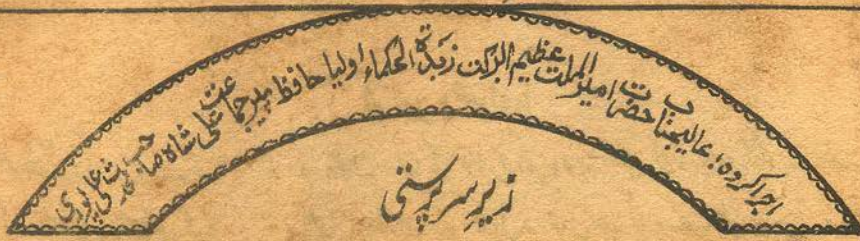 اجرا کردہ: عالیجناب حضرت امیر الملت عظیم البرکت زبدۃ الحکماء اولیا حافظ پیر جماعت علی شاہ صاحب محدث علی پوری
زیرِ سرپرستی